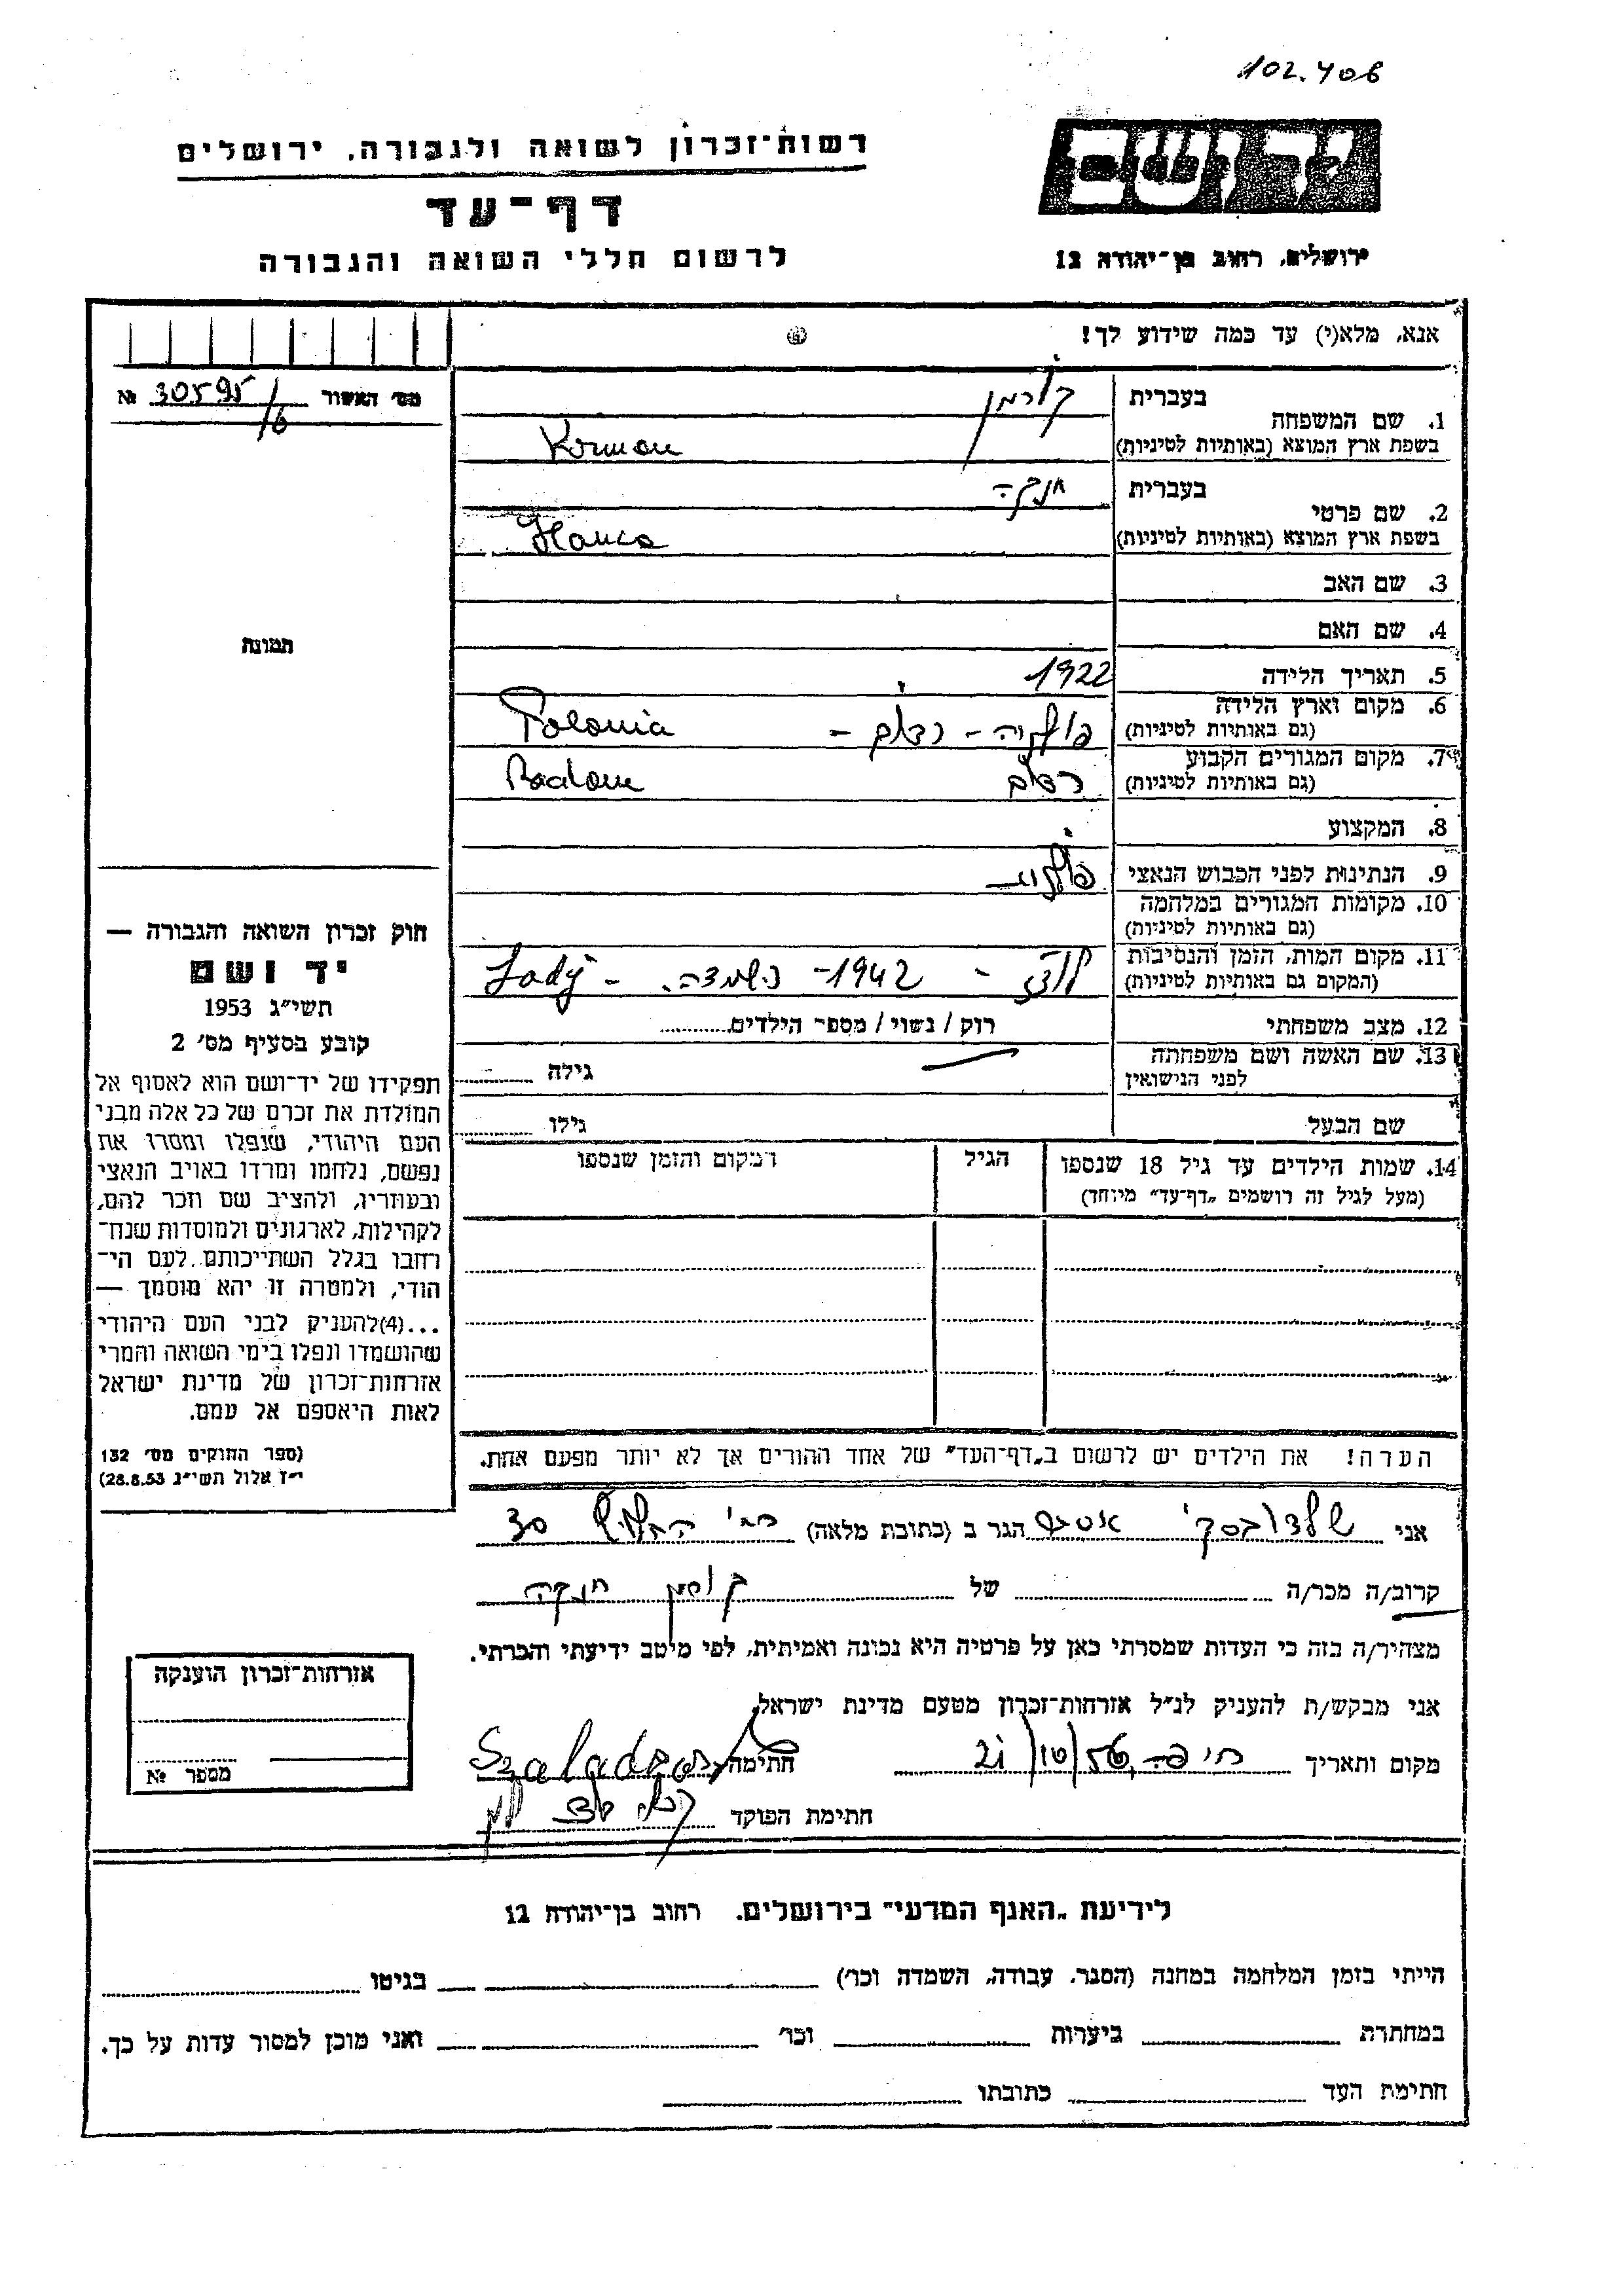 102.406
רשות־זכרון לשואה ולגבורה, ירושלים
יד ושם
דף־עד
לרשום חללי השואה והגבורה
ירושלים, רחוב בן־יהודה 12
אנא, מלא(י) עד כמה שידוע לך!
מס׳ האשור 30595/6 №
1. שם המשפחה
בעברית קורמן
בשפת ארץ המוצא (באותיות לטיניות) Korman
2. שם פרטי
בעברית חנקה
בשפת ארץ המוצא (באותיות לטיניות) Hanca
3. שם האב
4. שם האם
תמונה
5. תאריך הלידה 1922
6. מקום וארץ הלידה
(גם באותיות לטיניות) פולניה - רדום - Polonia
7. מקום המגורים הקבוע
(גם באותיות לטיניות) רדום Radom
8. המקצוע
9. הנתינות לפני הכבוש הנאצי פולנית
10. מקומות המגורים במלחמה
(גם באותיות לטיניות)
11. מקום המות, הזמן והנסיבות
(המקום גם באותיות לטיניות) לודז - 1942 - השמדה. -
12. מצב משפחתי רוק / נשוי / מספר הילדים
13. שם האשה ושם משפחתה
לפני הנישואין גילה
שם הבעל גילו
14. שמות הילדים עד גיל 18 שנספו
(מעל לגיל זה רושמים „דף־עד״ מיוחד)
הגיל
המקום והזמן שנספו
חוק זכרון השואה והגבורה —
יד ושם
תשי״ג 1953
קובע בסעיף מס׳ 2
תפקידו של יד־ושם הוא לאסוף אל
המולדת את זכרם של כל אלה מבני
העם היהודי, שנפלו ומסרו את
נפשם, נלחמו ומרדו באויב הנאצי
ובעוזריו, ולהציב שם וזכר להם,
לקהילות, לארגונים ולמוסדות שנח־
רחבו בגלל השתייכותם לעם הי־
הודי, ולמטרה זו יהא מוסמך —
...(4)להעניק לבני העם היהודי
שהושמדו ונפלו בימי השואה והמרי
אזרחות־זכרון של מדינת ישראל
לאות היאספם אל עמם.
(ספר החוקים מס׳ 132
י״ז אלול תשי״ג 28.8.53)
הערה! את הילדים יש לרשום ב„דף־העד״ של אחד ההורים אך לא יותר מפעם אחת.
אני אסתר הגר ב (כתובת מלאה) 30
קרוב/ה מכר/ה של קורמן חנקה
מצהיר/ה בזה כי העדות שמסרתי כאן על פרטיה היא נכונה ואמיתית, לפי מיטב ידיעתי והכרתי.
אני מבקש/ת להעניק לנ״ל אזרחות־זכרון מטעם מדינת ישראל
מקום ותאריך חיפה חתימה
חתימת הפוקד
אזרחות־זכרון הוענקה
מספר №
לידיעת „האגף המדעי״ בירושלים. רחוב בן־יהודה 12
הייתי בזמן המלחמה במחנה (הסגר, עבודה, השמדה וכו׳) בגיטו
במחתרת ביערות וכו׳ ואני מוכן למסור עדות על כך.
חתימת העד כתובתו